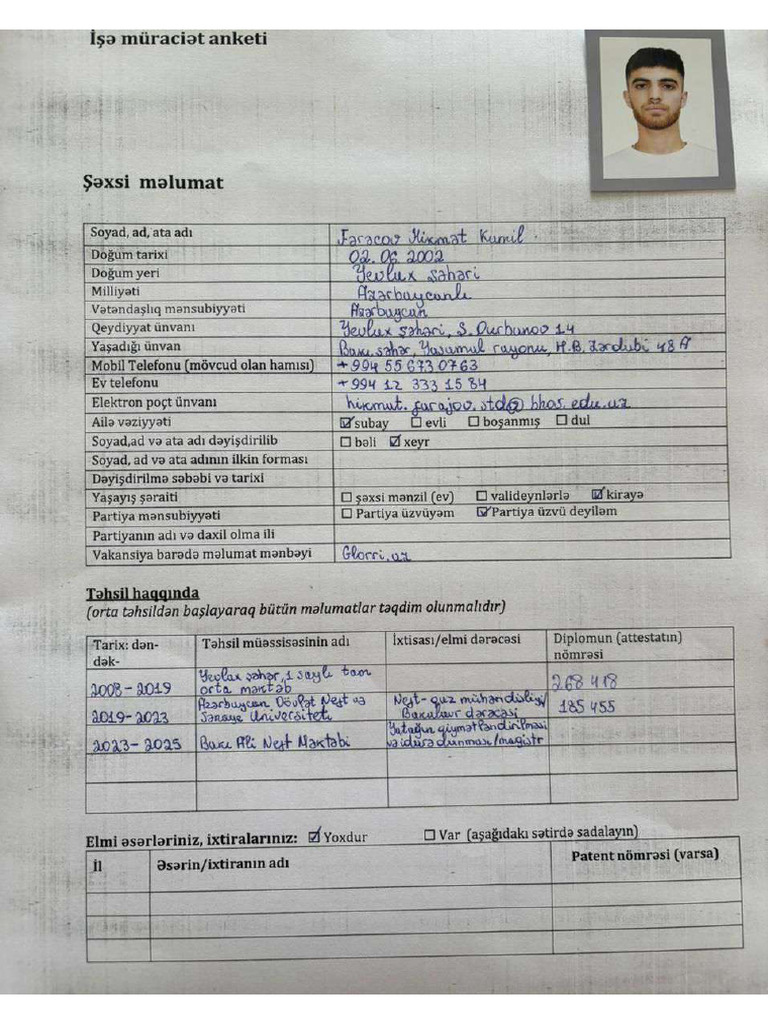 İşə müraciət anketi
Şəxsi məlumat
Soyad, ad, ata adı Fərəcov Hikmət Kamil
Doğum tarixi 02.06.2002
Doğum yeri Yevlax şəhəri
Milliyəti Azərbaycanlı
Vətəndaşlıq mənsubiyyəti Azərbaycan
Qeydiyyat ünvanı Yevlax şəhəri, S. Qurbanov 14
Yaşadığı ünvan Bakı şəhər, Yasamal rayonu, H.B. Zərdabi 48 A
Mobil Telefonu (mövcud olan hamısı) +994 55 673 07 63
Ev telefonu +994 12 333 15 84
Elektron poçt ünvanı hikmat.farajov.std@bhos.edu.az
Ailə vəziyyəti ☑ subay ☐ evli ☐ boşanmış ☐ dul
Soyad,ad və ata adı dəyişdirilib ☐ bəli ☑ xeyr
Soyad, ad və ata adının ilkin forması
Dəyişdirilmə səbəbi və tarixi
Yaşayış şəraiti ☐ şəxsi mənzil (ev) ☐ valideynlərlə ☑ kirayə
Partiya mənsubiyyəti ☐ Partiya üzvüyəm ☑ Partiya üzvü deyiləm
Partiyanın adı və daxil olma ili
Vakansiya barədə məlumat mənbəyi Glorri.az
Təhsil haqqında
(orta təhsildən başlayaraq bütün məlumatlar təqdim olunmalıdır)
Tarix: dən- Təhsil müəssisəsinin adı İxtisası/elmi dərəcəsi Diplomun (attestatın)
dək- nömrəsi
Yevlax şəhər, 1 saylı tam
2008-2019 orta məktəb 268 418
Azərbaycan Dövlət Neft və Neft-qaz mühəndisliyi/
2019-2023 Sənaye Universiteti Bakalavr dərəcəsi 185 455
Yatağın qiymətləndirilməsi
2023-2025 Bakı Ali Neft Məktəbi və idarə olunması/magistr
Elmi əsərləriniz, ixtiralarınız: ☑ Yoxdur ☐ Var (aşağıdakı sətirdə sadalayın)
İl Əsərin/ixtiranın adı Patent nömrəsi (varsa)